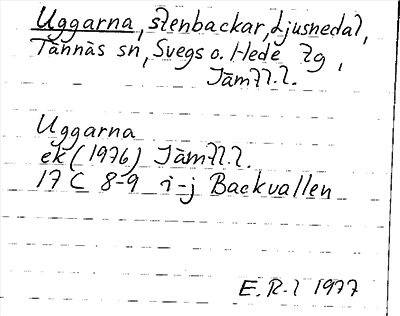 Uggarna, stenbackar, Ljusnedal,
Tännäs sn, Svegs o. Hede tg,
Jämtl.l.
Uggarna
ek (1976) Jämtl.l.
17 C 8-9 i-j Backvallen
E.R-l 1977